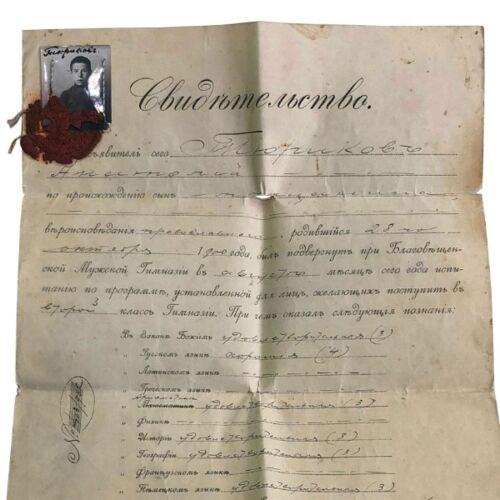 Тюриковъ.
Свидѣтельство.
Предъявитель сего Тюриковъ
Анатолій
по происхожденію сынъ мѣщанина
вѣроисповѣданія православнаго, родившійся 28 го
октября 1900 года, былъ подвергнутъ при Благовѣщен-
ской Мужской Гимназіи въ августѣ мѣсяцѣ сего года испы-
танію по программѣ, установленной для лицъ, желающихъ поступить въ
второй классъ Гимназіи. При чемъ оказалъ слѣдующія познанія:
Въ Законѣ Божіемъ удовлетворительныя (3)
„ Русскомъ языкѣ хорошія (4)
„ Латинскомъ языкѣ
„ Греческомъ языкѣ
Ариѳметикѣ
„ Математикѣ удовлетворительныя (3)
„ Физикѣ
„ Исторіи удовлетворительныя (3)
„ Географіи удовлетворительныя (3)
„ Французскомъ языкѣ
„ Нѣмецкомъ языкѣ удовлетворительныя (3)